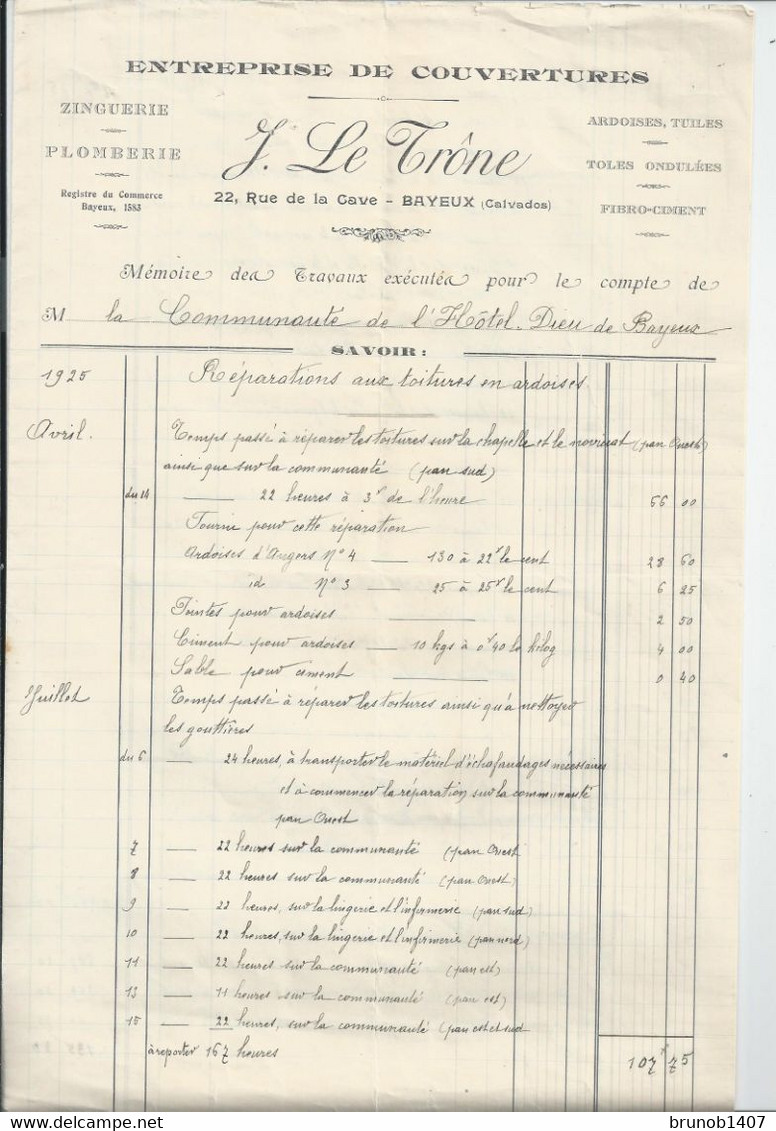 ENTREPRISE DE COUVERTURES
ZINGUERIE
PLOMBERIE
Registre du Commerce
Bayeux, 1583
J. Le Trône
22, Rue de la Cave - BAYEUX (Calvados)
ARDOISES, TUILES
TOLES ONDULÉES
FIBRO-CIMENT
Mémoire des Travaux exécutés pour le compte de
M la Communauté de l'Hôtel-Dieu de Bayeux
SAVOIR :
1925 Réparations aux toitures en ardoises
Avril. Temps passé à réparer les toitures sur la chapelle et le noviciat (pan Ouest)
ainsi que sur la communauté (pan sud)
du 14 — 22 heures à 3f de l'heure 66 00
Fourni pour cette réparation
Ardoises d'Angers N° 4 — 130 à 22f le cent 28 60
id N° 3 — 25 à 25f le cent 6 25
Pointes pour ardoises — 2 50
Ciment pour ardoises — 10 kgs à 0f40 le kilog 4 00
Sable pour ciment — 0 40
Juillet Temps passé à réparer les toitures ainsi qu'à nettoyer
les gouttières
du 6 — 24 heures, à transporter le matériel d'échafaudages nécessaires
et à commencer la réparation sur la communauté
pan Ouest
7 — 22 heures sur la communauté (pan Ouest
8 — 22 heures sur la communauté (pan Ouest)
9 — 22 heures, sur la lingerie et l'infirmerie (pan sud)
10 — 22 heures, sur la lingerie et l'infirmerie (pan nord)
11 — 22 heures sur la communauté (pan est)
13 — 11 heures sur la communauté (pan est)
15 — 22 heures, sur la communauté (pan est et sud
à reporter 167 heures 107f 75
brunob1407